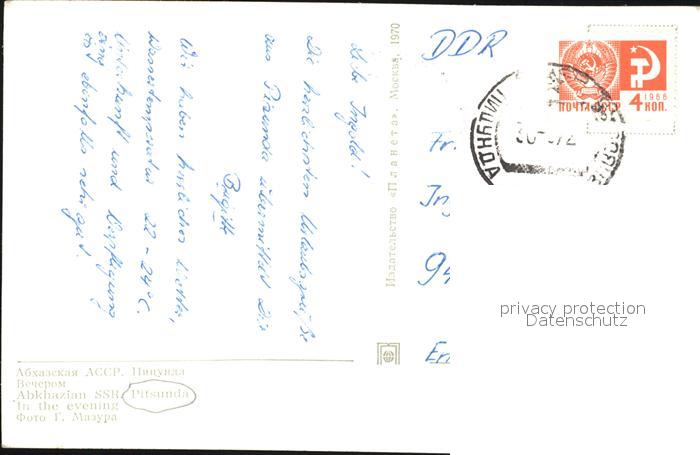 Liebe Ingold!
Die herzlichsten Urlaubsgrüße
aus Pizunda übermittelt Dir
Brigitte
Wir haben herrliches Wetter,
Wassertemperatur 22-24°C.
Unterkunft und Verpflegung
ist ebenfalls sehr gut.
Издательство «Планета». Москва. 1970
DDR
Fr.
In
94
Er
ПОЧТА СССР
1966
4 КОП.
privacy protection
Datenschutz
Абхазская АССР. Пицунда
Вечером
Abkhazian SSR. Pitsunda
In the evening
Фото Г. Мазура